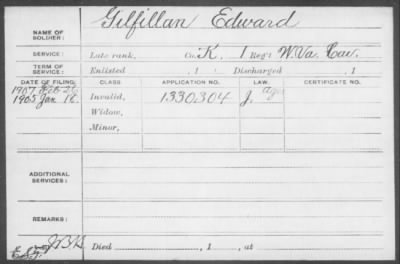 Gilfillan Edward
NAME OF SOLDIER:
SERVICE: Late rank, Co. K, 1 Reg't W. Va. Cav.
TERM OF SERVICE: Enlisted , 1 Discharged , 1
DATE OF FILING. CLASS. APPLICATION NO. LAW. CERTIFICATE NO.
1907 Feb 26
1905 Jan 16. Invalid, 1330304 J. age
Widow,
Minor,
ADDITIONAL SERVICES:
REMARKS:
Died , 1 , at